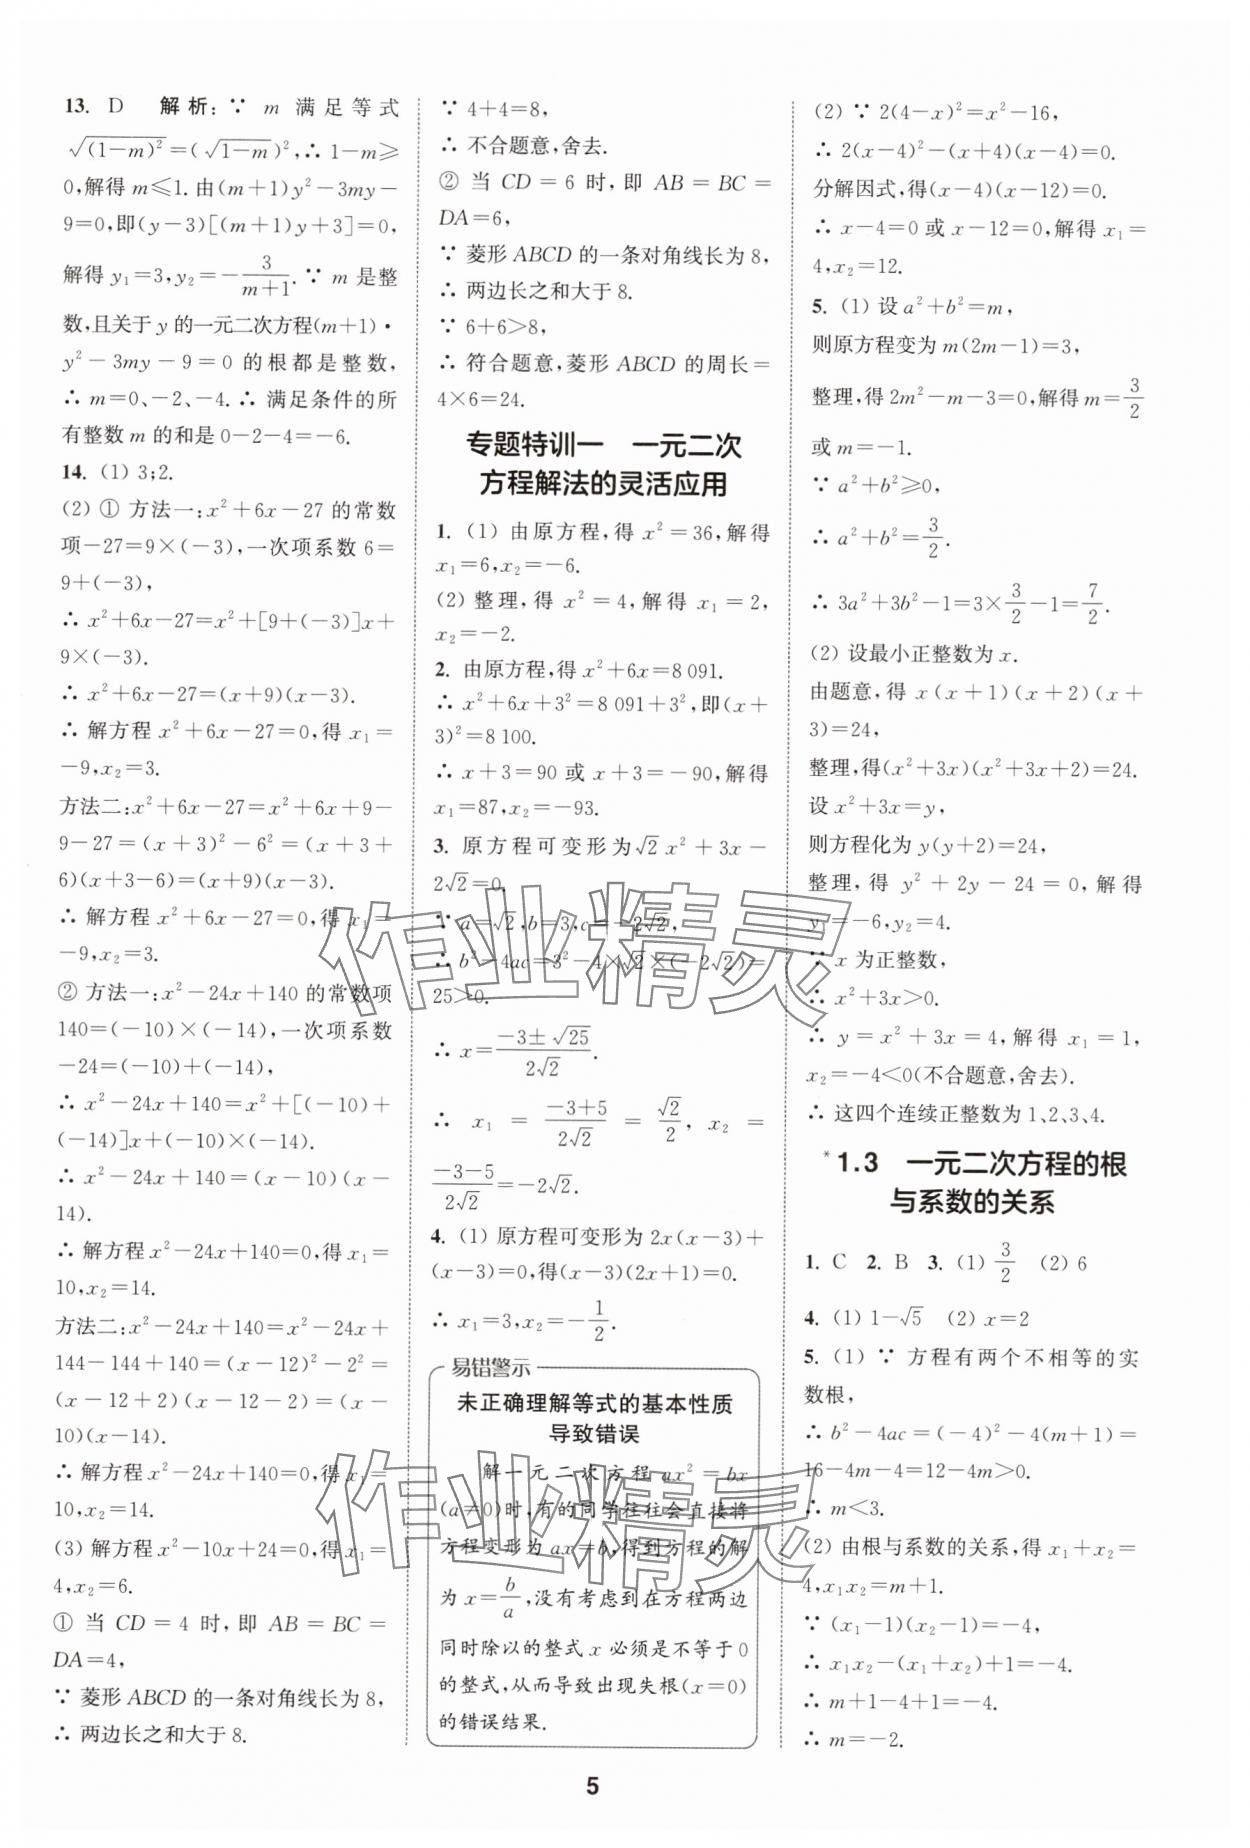 13. D 解析:∵ m 满足等式
√(1−m)²=(√1−m)²,∴ 1−m≥
0,解得 m≤1. 由(m+1)y²−3my−
9=0,即(y−3)[(m+1)y+3]=0,
解得 y₁=3,y₂=−3/(m+1). ∵ m 是整
数,且关于 y 的一元二次方程(m+1)·
y²−3my−9=0 的根都是整数,
∴ m=0、−2、−4. ∴ 满足条件的所
有整数 m 的和是 0−2−4=−6.
14. (1) 3;2.
(2) ① 方法一:x²+6x−27 的常数
项−27=9×(−3),一次项系数 6=
9+(−3),
∴ x²+6x−27=x²+[9+(−3)]x+
9×(−3).
∴ x²+6x−27=(x+9)(x−3).
∴ 解方程 x²+6x−27=0,得 x₁=
−9,x₂=3.
方法二:x²+6x−27=x²+6x+9−
9−27=(x+3)²−6²=(x+3+
6)(x+3−6)=(x+9)(x−3).
∴ 解方程 x²+6x−27=0,得 x₁=
−9,x₂=3.
② 方法一:x²−24x+140 的常数项
140=(−10)×(−14),一次项系数
−24=(−10)+(−14),
∴ x²−24x+140=x²+[(−10)+
(−14)]x+(−10)×(−14).
∴ x²−24x+140=(x−10)(x−
14).
∴ 解方程 x²−24x+140=0,得 x₁=
10,x₂=14.
方法二:x²−24x+140=x²−24x+
144−144+140=(x−12)²−2²=
(x−12+2)(x−12−2)=(x−
10)(x−14).
∴ 解方程 x²−24x+140=0,得 x₁=
10,x₂=14.
(3) 解方程 x²−10x+24=0,得 x₁=
4,x₂=6.
① 当 CD=4 时,即 AB=BC=
DA=4,
∵ 菱形 ABCD 的一条对角线长为 8,
∴ 两边长之和大于 8.
∵ 4+4=8,
∴ 不合题意,舍去.
② 当 CD=6 时,即 AB=BC=
DA=6,
∵ 菱形 ABCD 的一条对角线长为 8,
∴ 两边长之和大于 8.
∵ 6+6>8,
∴ 符合题意,菱形 ABCD 的周长=
4×6=24.
专题特训一 一元二次
方程解法的灵活应用
1. (1) 由原方程,得 x²=36,解得
x₁=6,x₂=−6.
(2) 整理,得 x²=4,解得 x₁=2,
x₂=−2.
2. 由原方程,得 x²+6x=8 091.
∴ x²+6x+3²=8 091+3²,即(x+
3)²=8 100.
∴ x+3=90 或 x+3=−90,解得
x₁=87,x₂=−93.
3. 原方程可变形为√2x²+3x−
2√2=0.
∵ a=√2,b=3,c=−2√2,
∴ b²−4ac=3²−4×√2×(−2√2)=
25>0.
∴ x=(−3±√25)/(2√2).
∴ x₁=(−3+5)/(2√2)=√2/2,x₂=
(−3−5)/(2√2)=−2√2.
4. (1) 原方程可变形为 2x(x−3)+
(x−3)=0,得(x−3)(2x+1)=0.
∴ x₁=3,x₂=−1/2.
易错警示
未正确理解等式的基本性质
导致错误
解一元二次方程 ax²=bx
(a≠0)时,有的同学往往会直接将
方程变形为 ax=b,得到方程的解
为 x=b/a,没有考虑到在方程两边
同时除以的整式 x 必须是不等于 0
的整式,从而导致出现失根(x=0)
的错误结果.
(2) ∵ 2(4−x)²=x²−16,
∴ 2(x−4)²−(x+4)(x−4)=0.
分解因式,得(x−4)(x−12)=0.
∴ x−4=0 或 x−12=0,解得 x₁=
4,x₂=12.
5. (1) 设 a²+b²=m,
则原方程变为 m(2m−1)=3,
整理,得 2m²−m−3=0,解得 m=3/2
或 m=−1.
∵ a²+b²≥0,
∴ a²+b²=3/2.
∴ 3a²+3b²−1=3×3/2−1=7/2.
(2) 设最小正整数为 x.
由题意,得 x(x+1)(x+2)(x+
3)=24,
整理,得(x²+3x)(x²+3x+2)=24.
设 x²+3x=y,
则方程化为 y(y+2)=24,
整理,得 y²+2y−24=0,解得
y₁=−6,y₂=4.
∵ x 为正整数,
∴ x²+3x>0.
∴ y=x²+3x=4,解得 x₁=1,
x₂=−4<0(不合题意,舍去).
∴ 这四个连续正整数为 1、2、3、4.
*1.3 一元二次方程的根
与系数的关系
1. C 2. B 3. (1) 3/2 (2) 6
4. (1) 1−√5 (2) x=2
5. (1) ∵ 方程有两个不相等的实
数根,
∴ b²−4ac=(−4)²−4(m+1)=
16−4m−4=12−4m>0.
∴ m<3.
(2) 由根与系数的关系,得 x₁+x₂=
4,x₁x₂=m+1.
∵ (x₁−1)(x₂−1)=−4,
∴ x₁x₂−(x₁+x₂)+1=−4.
∴ m+1−4+1=−4.
∴ m=−2.
5
作业精灵
作业精灵